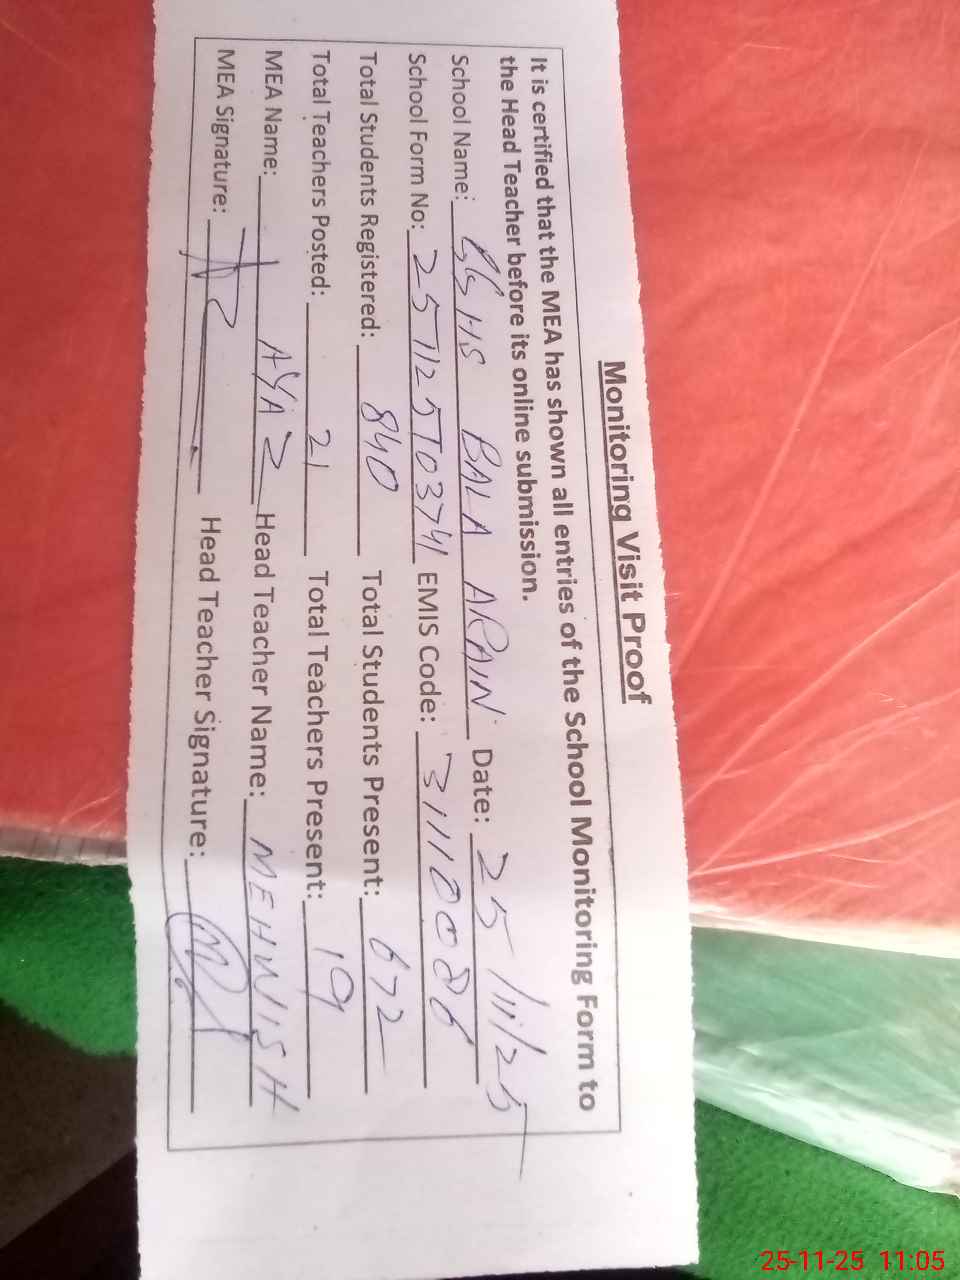 Monitoring Visit Proof
It is certified that the MEA has shown all entries of the School Monitoring Form to
the Head Teacher before its online submission.
School Name: GGHS BALA ARAIN Date: 25/11/25
School Form No: EMIS Code: 31110086
Total Students Registered: 840 Total Students Present: 672
Total Teachers Posted: 21 Total Teachers Present: 19
MEA Name: AYAZ Head Teacher Name: MEHWISH
MEA Signature: Head Teacher Signature:
25-11-25 11:05